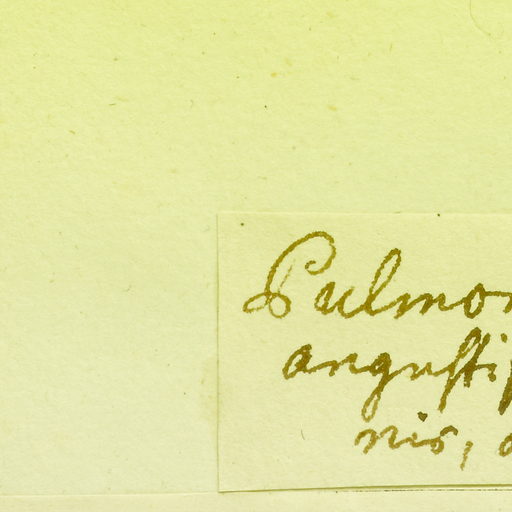 Pulmon
angustif
nis,